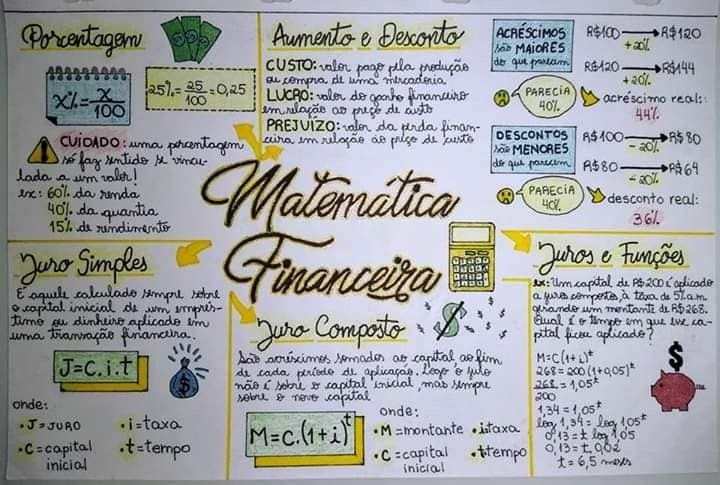 Porcentagem
x% = x/100
25% = 25/100 = 0,25
CUIDADO: uma porcentagem
só faz sentido se vincu-
lada a um valor!
ex: 60% da renda
40% da quantia
15% de rendimento
Aumento e Desconto
CUSTO: valor pago pela produção
ou compra de uma mercadoria
LUCRO: valor do ganho financeiro
em relação ao preço de custo
PREJUÍZO: valor da perda finan-
ceira em relação ao preço de custo
ACRÉSCIMOS
são MAIORES
do que parecem
R$100 → R$120
+20%
R$120 → R$144
+20%
PARECIA
40%
acréscimo real:
44%
DESCONTOS
são MENORES
do que parecem
R$100 → R$80
-20%
R$80 → R$64
-20%
PARECIA
40%
desconto real:
36%
Matemática
Financeira
Juro Simples
É aquele calculado sempre sobre
o capital inicial de um emprés-
timo ou dinheiro aplicado em
uma transação financeira.
J=C.i.t
$
onde:
• J= JURO
• i= taxa
• C= capital
inicial
• t= tempo
Juro Composto
$
São acréscimos somados ao capital ao fim
de cada período de aplicação. Logo o juro
não é sobre o capital inicial, mas sempre
sobre o novo capital
M=C.(1+i)^t
onde:
• M= montante
• i=taxa
• C= capital
inicial
• t=tempo
Juros e Funções
ex: Um capital de R$200 é aplicado
a juros compostos, à taxa de 5% a.m
gerando um montante de R$268.
Qual é o tempo em que esse ca-
pital ficou aplicado?
M=C(1+i)^t
268=200(1+0,05)^t
268/200 = 1,05^t
1,34 = 1,05^t
log 1,34 = log 1,05^t
0,13 = t log 1,05
0,13 = t 0,02
t = 6,5 meses
$